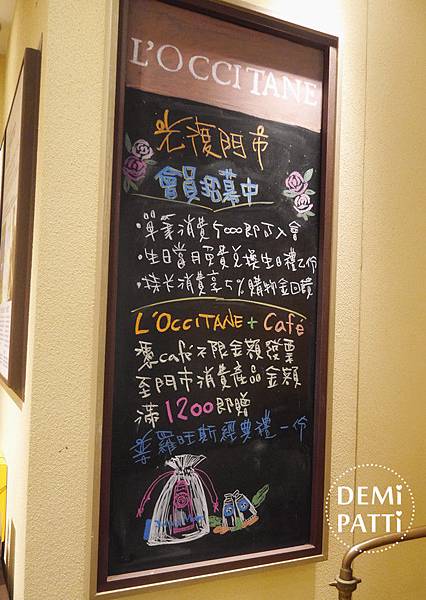 L'OCCITANE
光復門市
會員招募中
·單筆消費5000即可入會
·生日當月免費兌換生日禮乙份
·採光消費享5%購物金回饋
L'OCCITANE + Café
憑café不限金額發票
至門市消費產品金額
滿1200即贈
普羅旺斯經典禮一份
DEMi
PATTi